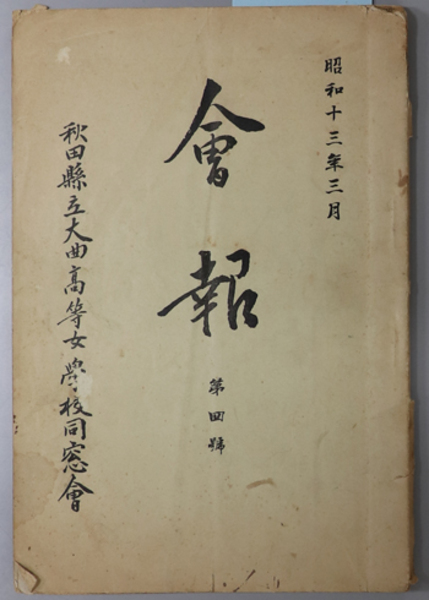 昭和十三年三月
會報
第四號
秋田縣立大曲高等女學校同窓會